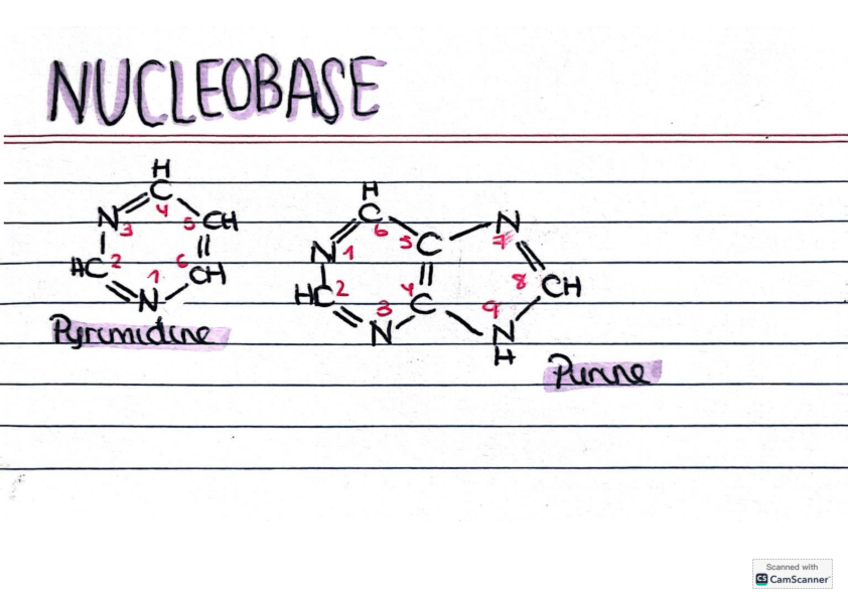 NUCLEOBASE
H
C
4
N
3
5
CH
HC
2
1
6
CH
N
Pyrimidine
H
C
6
N
1
5
C
N
7
HC
2
4
C
8
CH
3
N
9
N
H
Purine
Scanned with
CS CamScanner